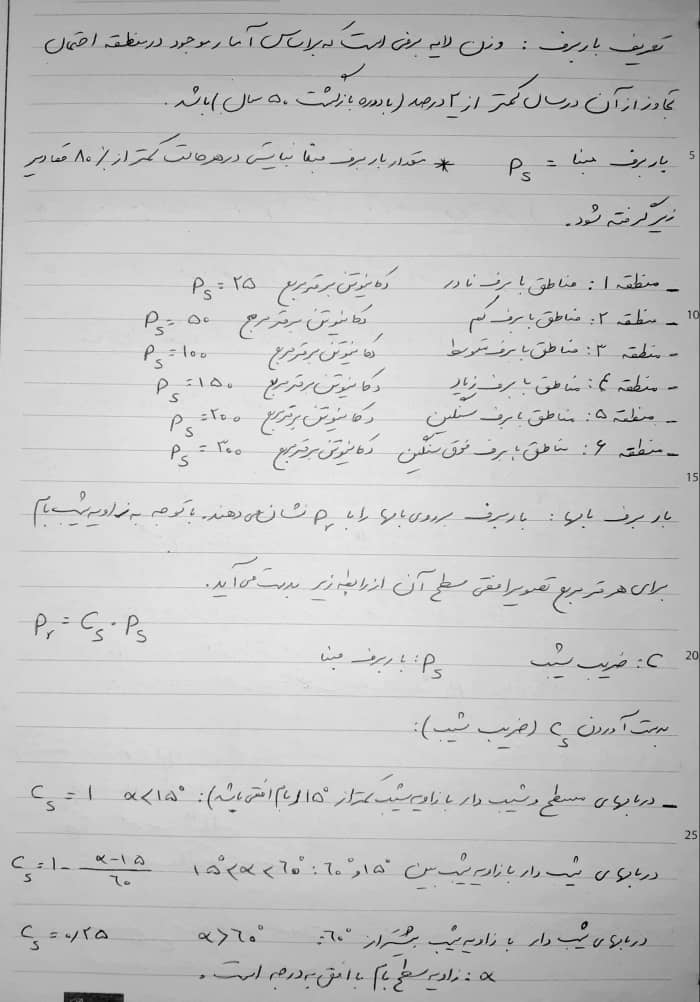 تعریف بار برف : وزن لایه برفی است که براساس آمار موجود در منطقه احتمال
تجاوز از آن در سال کمتر از ۲ درصد (با دوره بازگشت ۵۰ سال) باشد.
5
بار برف مبنا = Ps * مقدار بار برف مبنا نبایستی در هر حالت کمتر از ۸۰٪ مقادیر
زیر گرفته شود.
_ منطقه ۱ : مناطق با برف نادر دکانیوتن برمترمربع Ps = ۲۵
10
_ منطقه ۲ : مناطق با برف کم دکانیوتن برمترمربع Ps = ۵۰
_ منطقه ۳ : مناطق با برف متوسط دکانیوتن برمترمربع Ps = ۱۰۰
_ منطقه ۴ : مناطق با برف زیاد دکانیوتن برمترمربع Ps = ۱۵۰
_ منطقه ۵ : مناطق با برف سنگین دکانیوتن برمترمربع Ps = ۲۰۰
_ منطقه ۶ : مناطق با برف فوق سنگین دکانیوتن برمترمربع Ps = ۳۰۰
15
بار برف بامها : بار برف بر روی بامها را با Pr نشان می دهند. با توجه به زاویه شیب بام
برای هر متر مربع تصویر افقی سطح آن از رابطه زیر بدست می آید.
Pr = Cs . Ps
20
C : ضریب شیب Ps : بار برف مبنا
بدست آوردن Cs (ضریب شیب) :
_ در بامهای مسطح و شیب دار با زاویه شیب کمتر از ۱۵° (بام افقی باشد) : α < ۱۵° Cs = ۱
25
در بامهای شیب دار با زاویه شیب بین ۱۵° و ۶۰° : ۱۵° < α < ۶۰° Cs = ۱ - (α - ۱۵)/۶۰
در بامهای شیب دار با زاویه شیب بیشتر از ۶۰° : α > ۶۰° Cs = ۰/۲۵
α : زاویه سطح بام با افق به درجه است.